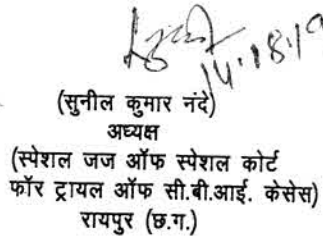 14.18.19
(सुनील कुमार नंदे)
अध्यक्ष
(स्पेशल जज ऑफ स्पेशल कोर्ट
फॉर ट्रायल ऑफ सी.बी.आई. केसेस)
रायपुर (छ.ग.)